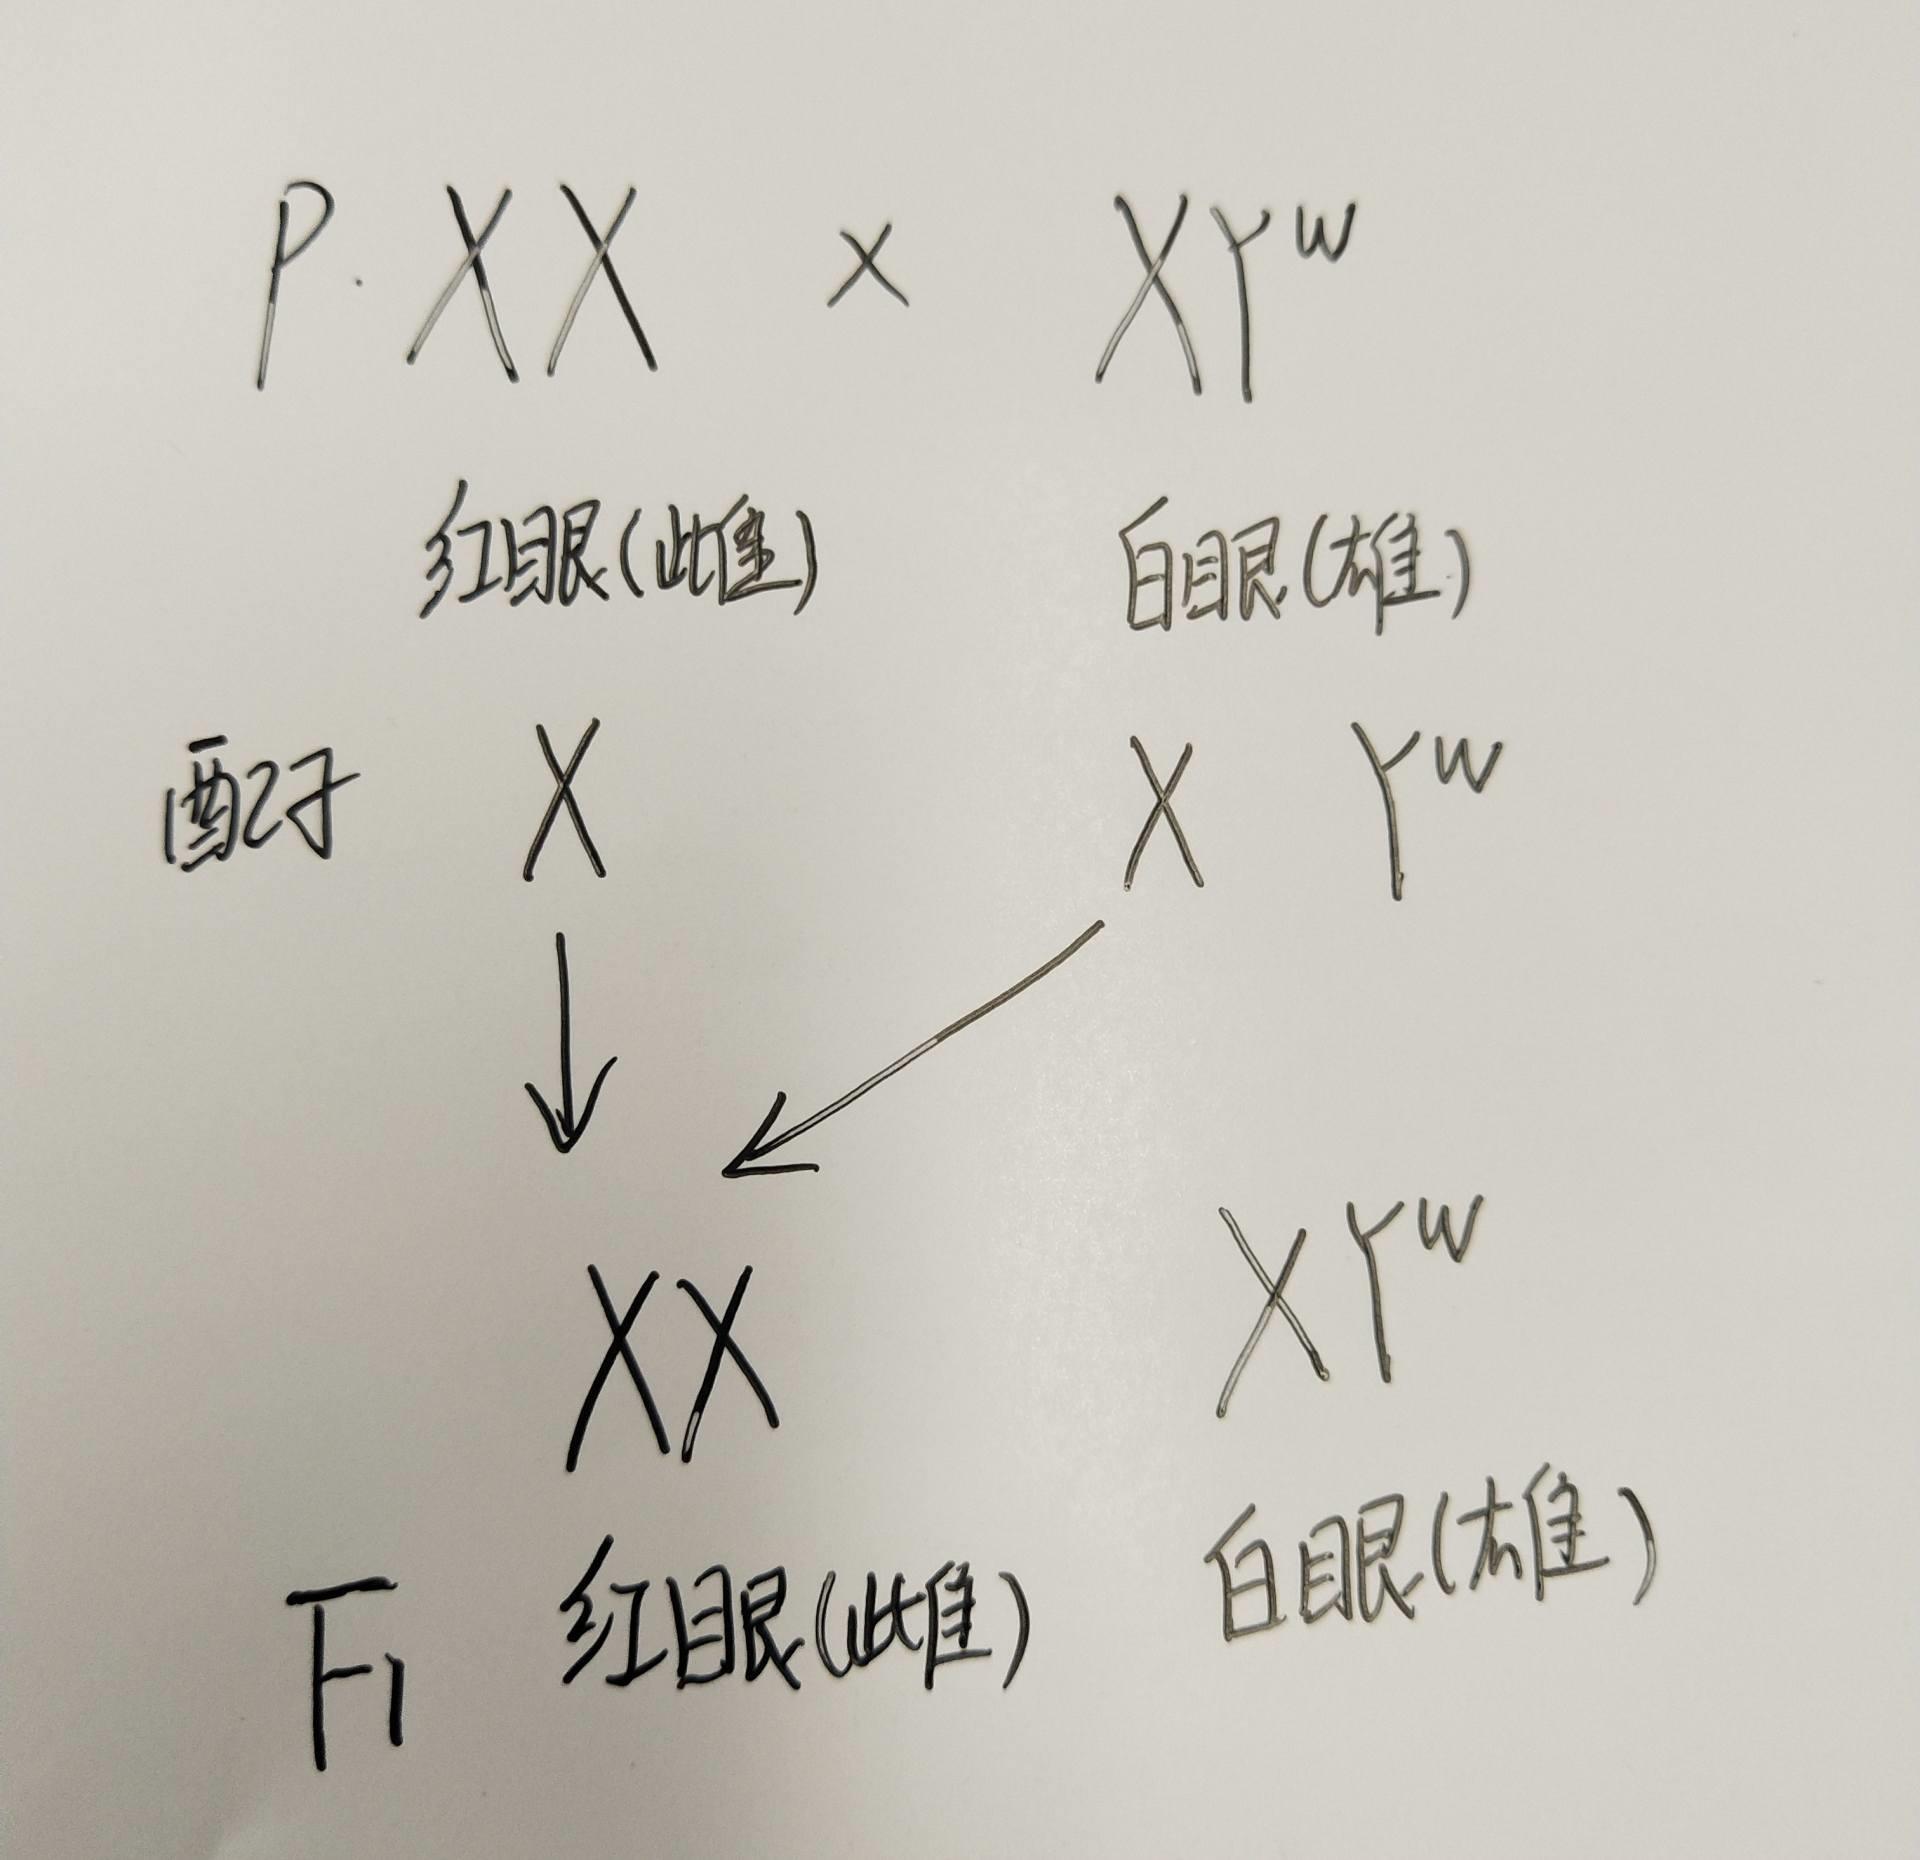 P. XX × XYʷ
红眼(雌) 白眼(雄)
配子 X X Yʷ
XX XYʷ
F1 红眼(雌) 白眼(雄)